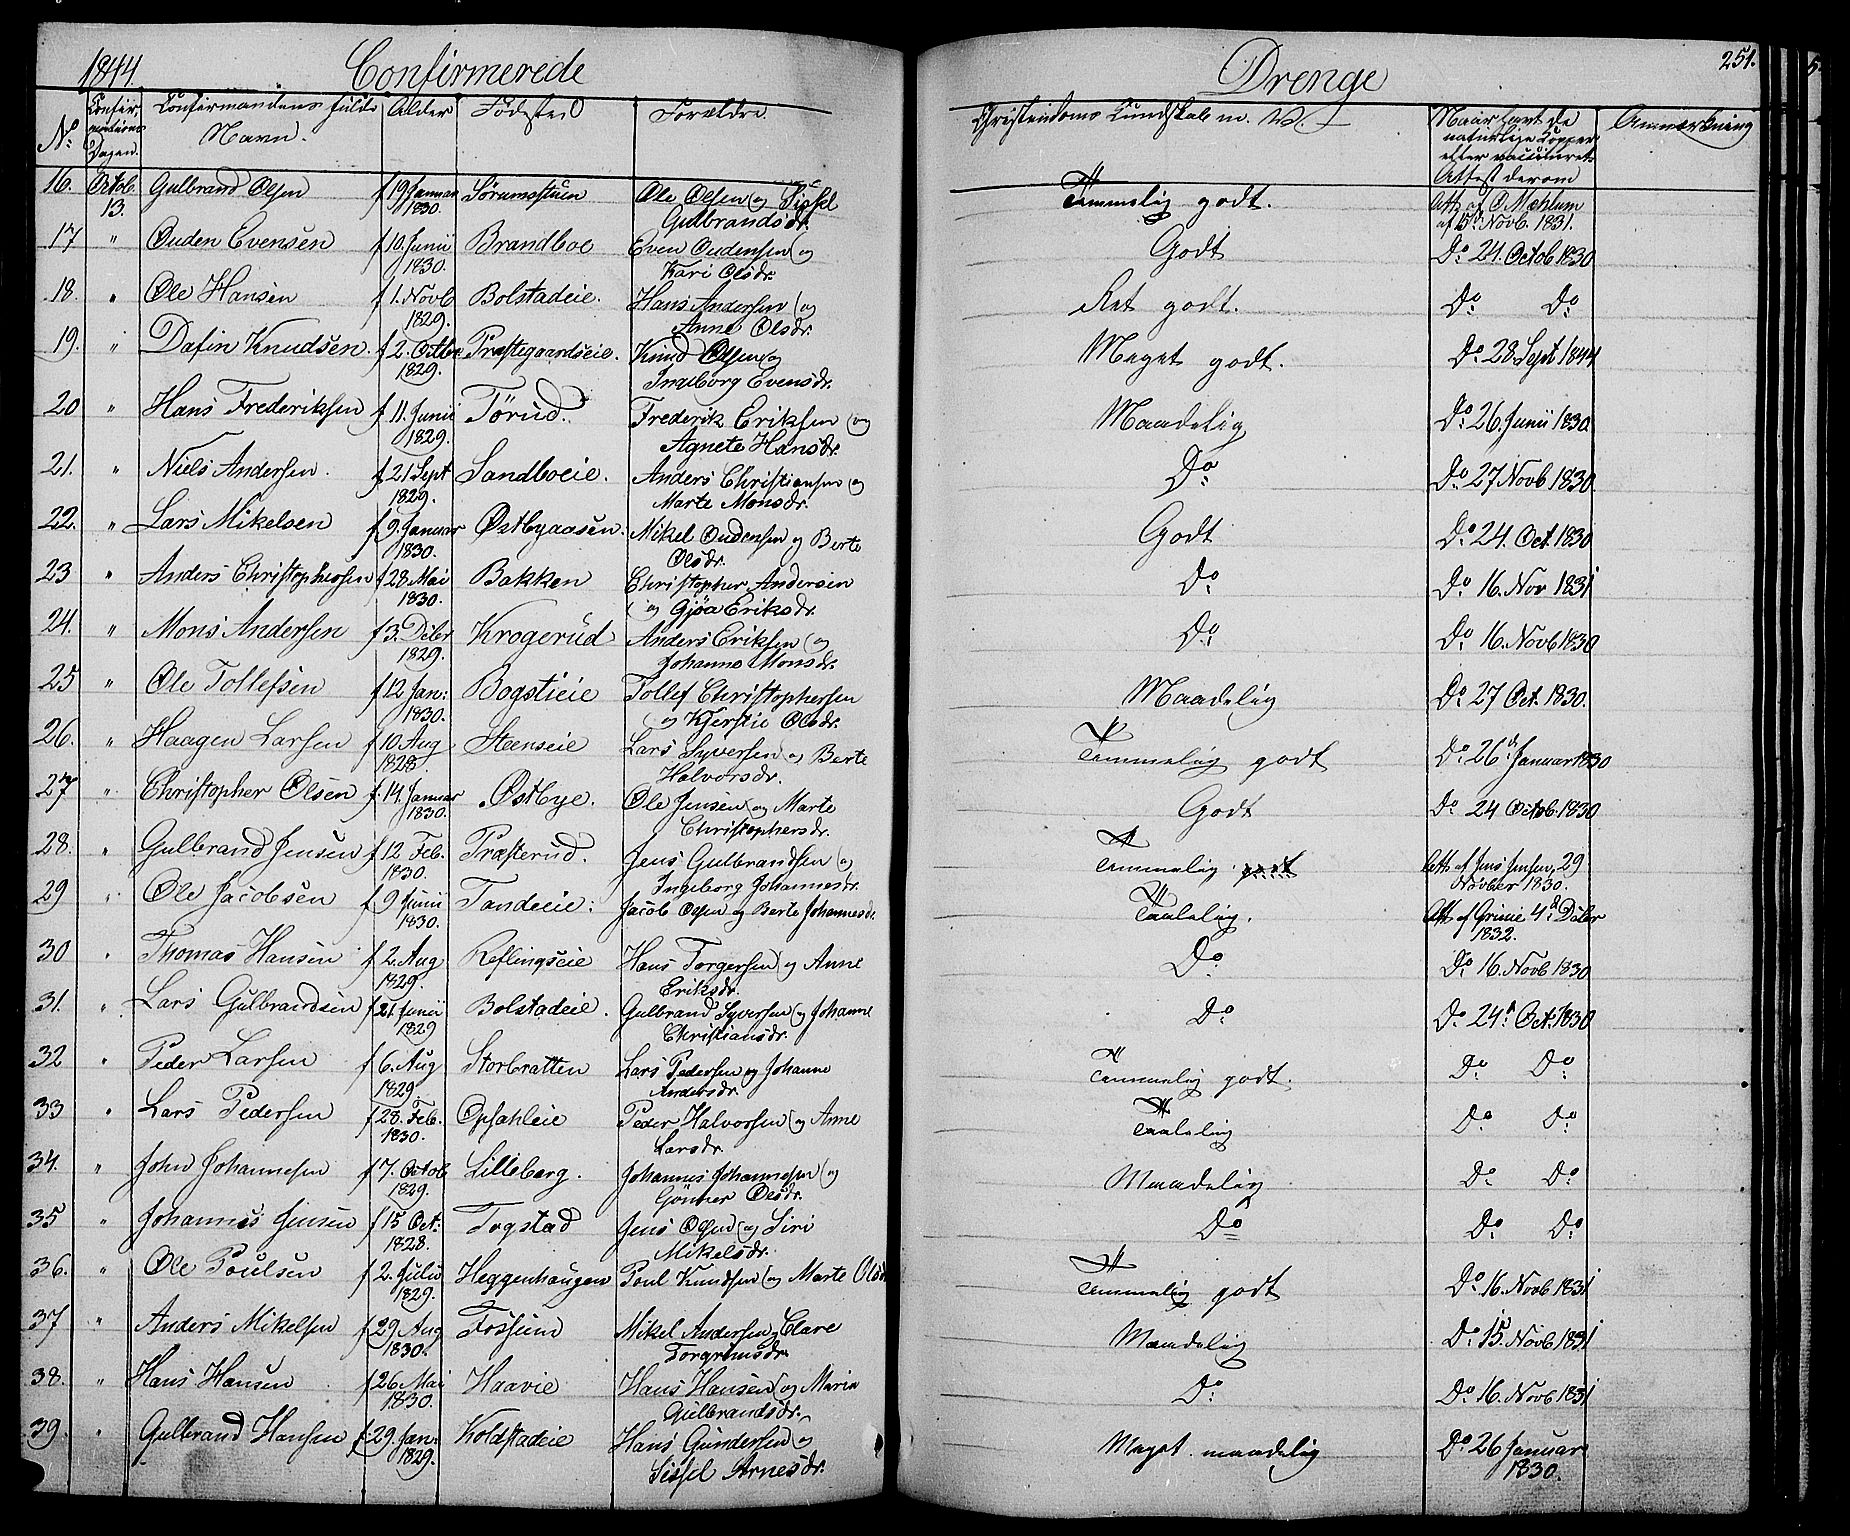 1844. Confirmerede Drenge 251.
No. Confirmations Dagen. Confirmandens fulde Navn. Alder Födested Forældre. Christendoms Kundskab m. V. Naar havt de naturlige Kopper eller vaccineret Attest derom Anmærkning
16. Octob. 13. Gulbrand Olsen f 19 Januar 1830. Sørumsstuen Ole Olsen og Sissel Gulbrandsdr. Temmelig godt. Att. af O Mæhlum af 15d Novb. 1831.
17 " Ouden Evensen f 10. Junii 1830. Brandboe Even Oudensen og Kari Olsdr. Godt Do 24. Octob 1830
18. " Ole Hansen f 1. Novb 1829. Bolstadeie. Hans Andersen og Anne Olsdr. Ret godt. Do Do
19. " Dafin Knudsen f 2. Octbr 1829. Præstegaardseie. Knud Olsen og Ingeborg Evensdr. Meget godt. Do 28. Sept 1844
20 " Hans Frederiksen f 11. Junii 1829. Törud. Frederik Eriksen og Agnete Hansdr. Maadelig Do 26. Junii 1830.
21. " Niels Andersen. f 21 Sept 1829. Sandboeie. Anders Christiansen og Marte Monsdr. Do Do 27 Novb 1830
22. " Lars Mikelsen f 9. Januar 1830. Østbyaasen. Mikel Oudensen og Berte Olsdr. Godt Do 24. Oct. 1830
23 " Anders Christophersen f 28. Mai 1830. Bakken Christopher Andersen og Gjöa Eriksdr. Do Do 16. Nov 1831
24. " Mons Andersen f 3. Dcbr 1829. Krogerud Anders Eriksen og Johanne Monsdr. Do Do 16. Novb 1830
25 " Ole Tollefsen f 12 Jan: 1830. Bogstieie Tollef Christophersen og Kjerstie Olsdr. Maadelig Do 27 Oct. 1830.
26. " Haagen Larsen f 10 Aug 1828 Steenseie Lars Syversen og Berte Halvorsdr. Temmelig godt Do 26d Januar 1830
27 " Christopher Olsen f. 14. Januar 1830. Østbye. Ole Jensen og Marte Christophersdr. Godt Do 24 Octob. 1830
28. " Gulbrand Jensen f 12 Feb. 1830. Præsterud. Jens Gulbrandsen og Ingeborg Johannesdr. Temmelig godt Att. af Jens Jensen, 29 Növber 1830.
29 " Ole Jacobsen f 9 Junii 1830. Tandeeie: Jacob Olsen og Berte Johannesdr. Taalelig. Att. af Grinie 4d Dcbr 1832.
30 " Thomas Hansen f 2. Aug 1829. Reflingseie Hans Torgersen og Anne Eriksdr. Do Do 16. Novb 1830
31. " Lars Gulbrandsen f 21 Junii 1829 Bolstadeie. Gulbrand Syversen og Johanne Christiansdr. Do Do 24d Oct. 1830
32 " Peder Larsen f 6. Aug 1829 Storbratten Lars Pedersen og Johanne Andersdr. Temmelig godt. Do Do
33 " Lars Pedersen f 28. Feb. 1830. Opsahleie Peder Halvorsen og Anne Larsdr. Taalelig Do Do
34. " John Johannesen f 7. Octob 1829. Lilleberg. Johannes Johannesen og Gönner Olsdr. Maadelig Do Do
35 " Johannes Jensen f 15 Oct. 1828. Togstad Jens Olsen og Siri Mikelsdr. Do Do Do
36. " Ole Poulsen f 2. Julii 1829. Heggenhaugen Poul Knudsen og Marte Olsdr Temmelig godt Do 16. Novb 1831
37 " Anders Mikelsen f 29 Aug 1830. Fossum Mikel Andersen og Clare Torgrimsdr. Maadelig Do 15. Növb 1831
38. " Hans Hansen f 26 Mai 1830. Haavie Hans Hansen og Maria Gulbrandsdr. Do Do 16. Novb 1831
39. " Gulbrand Hansen f 29. Jan: 1829. Koldstadeie Hans Gundersen og Sissel Arnesdr. Meget maadelig Do 26 Januar 1830.